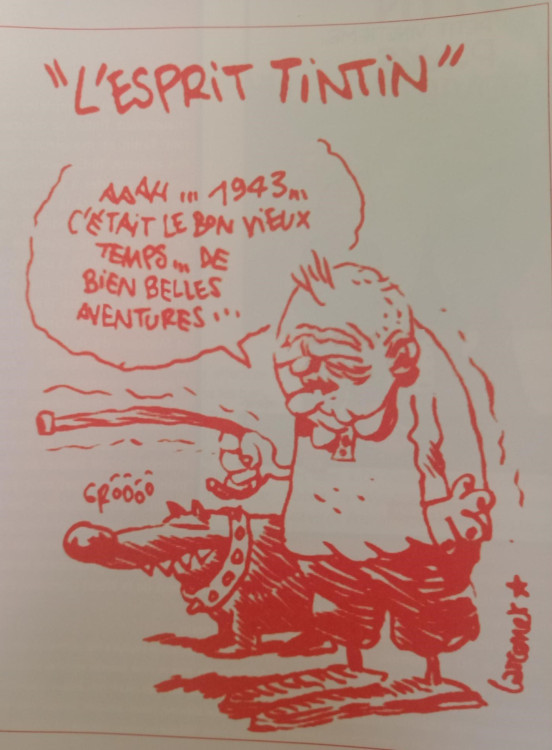 "L'ESPRIT TINTIN"
AAAH... 1943...
C'ÉTAIT LE BON VIEUX
TEMPS... DE
BIEN BELLES
AVENTURES...
GRÔÔÔÔ